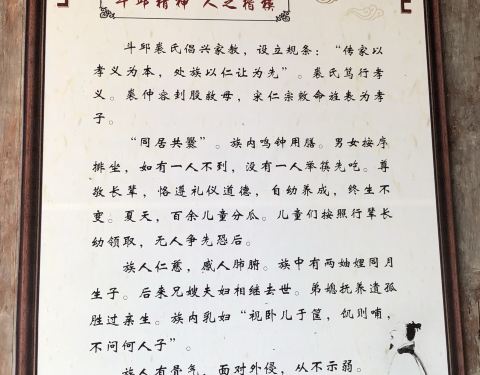 斗邱精神 人之楷模
斗邱裘氏倡兴家教，设立规条：“传家以
孝义为本，处族以仁让为先”。裘氏笃行孝
义。裘仲容刲股救母，宋仁宗敕命旌表为孝
子。
“同居共爨”。族内鸣钟用膳。男女按序
排坐，如有一人不到，没有一人举筷先吃。尊
敬长辈，恪遵礼仪道德，自幼养成，终生不
变。夏天，百余儿童分瓜。儿童们按照行辈长
幼领取，无人争先恐后。
族人仁慈，感人肺腑。族中有两妯娌同月
生子。后来兄嫂夫妇相继去世。弟媳抚养遗孤
胜过亲生。族内乳妇“视卧儿于筐，饥则哺，
不问何人子”。
族人有骨气，面对外侵，从不示弱。